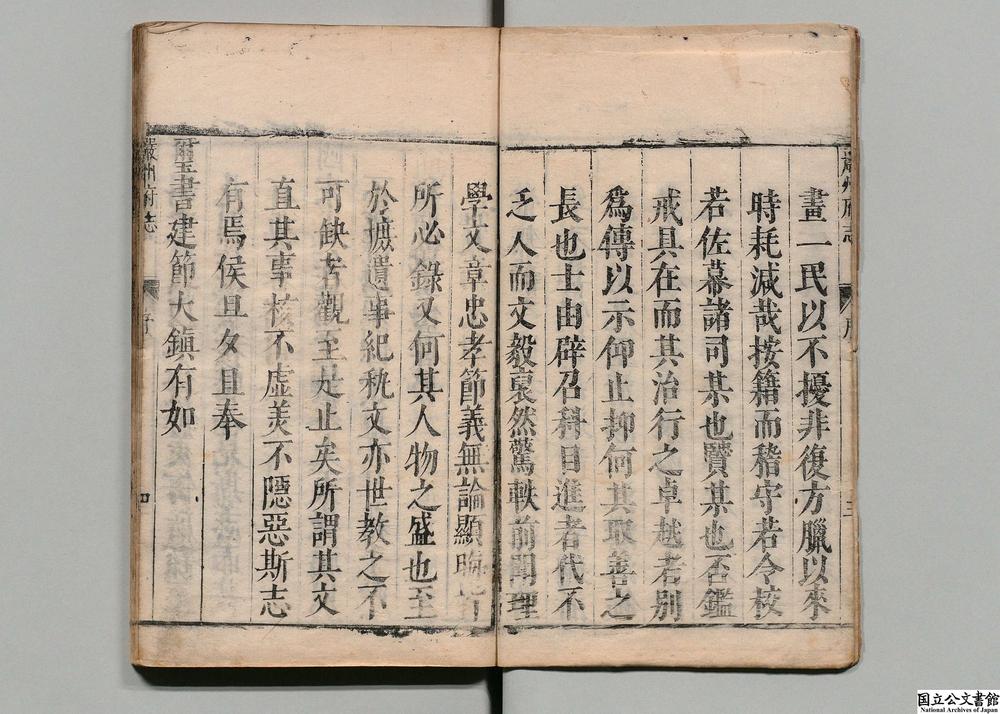 畫一民以不擾非復方臘以來
時耗減哉按籍而稽守若令校
若佐幕諸司某也賢某也否鑑
戒具在而其治行之卓越者別
爲傳以示仰止抑何其取善之
長也士由辟召科目進者代不
乏人而文毅裒然驚軼前聞理
學文章忠孝節義無論顯晦
所必錄又何其人物之盛也至
於摭遺事紀秇文亦世教之不
可缺者觀至是止矣所謂其文
直其事核不虛美不隱惡斯志
有焉侯旦夕且奉
璽書建節大鎮有如
嚴州府志
四
嚴州府志
三
国立公文書館
National Archives of Japan